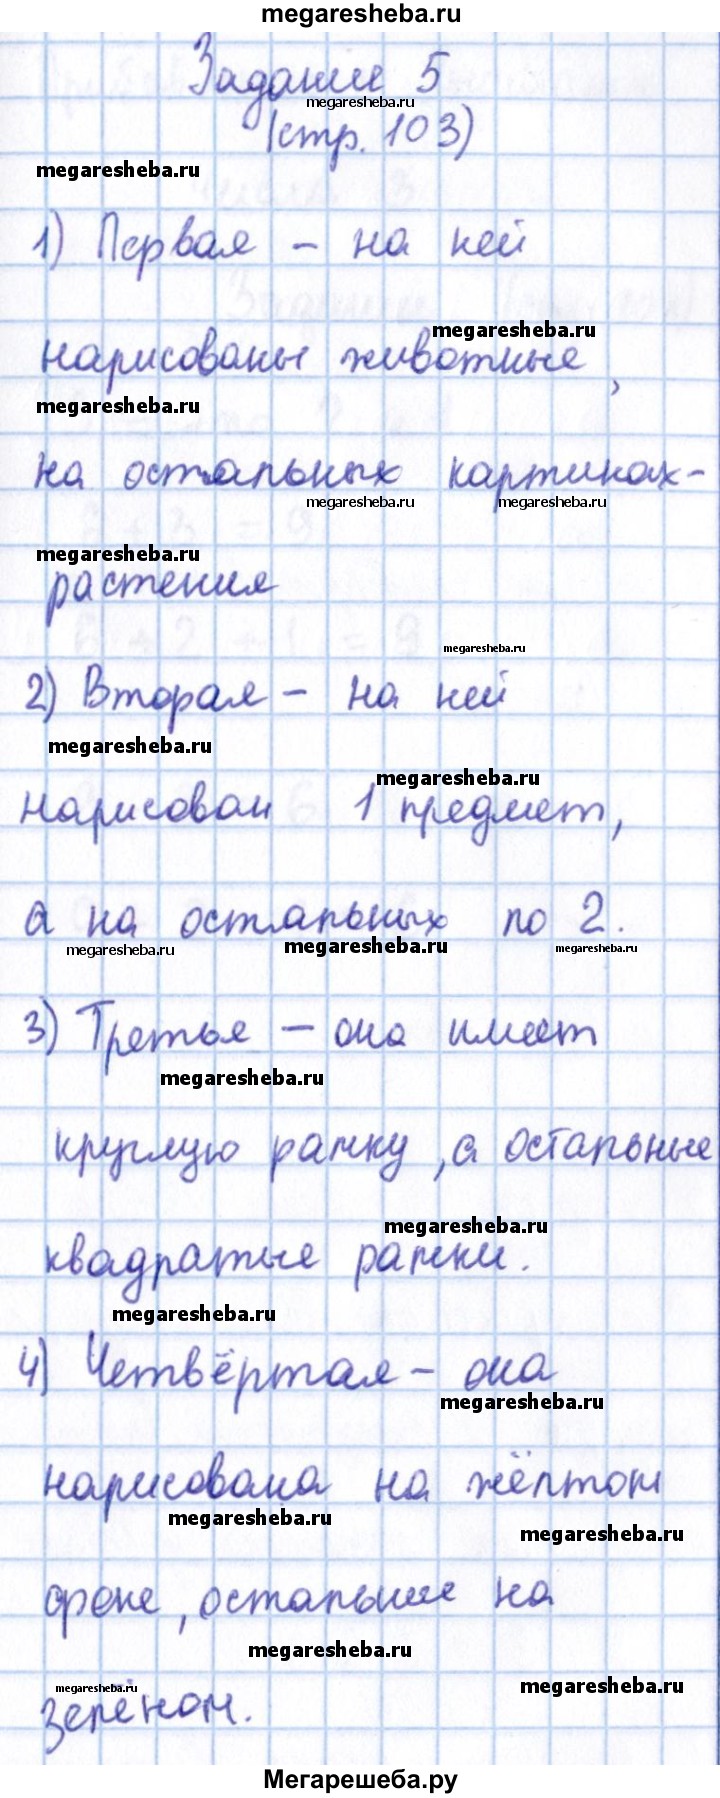 megaresheba.ru
Задание 5
megaresheba.ru
(стр. 103)
megaresheba.ru
1) Первая – на ней
megaresheba.ru
нарисованы животные,
megaresheba.ru
на остальных картинах-
megaresheba.ru megaresheba.ru
megaresheba.ru
растения
megaresheba.ru
2) Вторая – на ней
megaresheba.ru
megaresheba.ru
нарисован 1 предмет,
а на остальных по 2.
megaresheba.ru megaresheba.ru megaresheba.ru
3) Третья – она имеет
megaresheba.ru
круглую рамку, а остальные
megaresheba.ru
квадратные рамки.
megaresheba.ru
4) Четвёртая – она
megaresheba.ru
нарисована на жёлтом
megaresheba.ru
megaresheba.ru
фоне, остальные на
megaresheba.ru
megaresheba.ru megaresheba.ru
зелёном.
Мегарешеба.ру